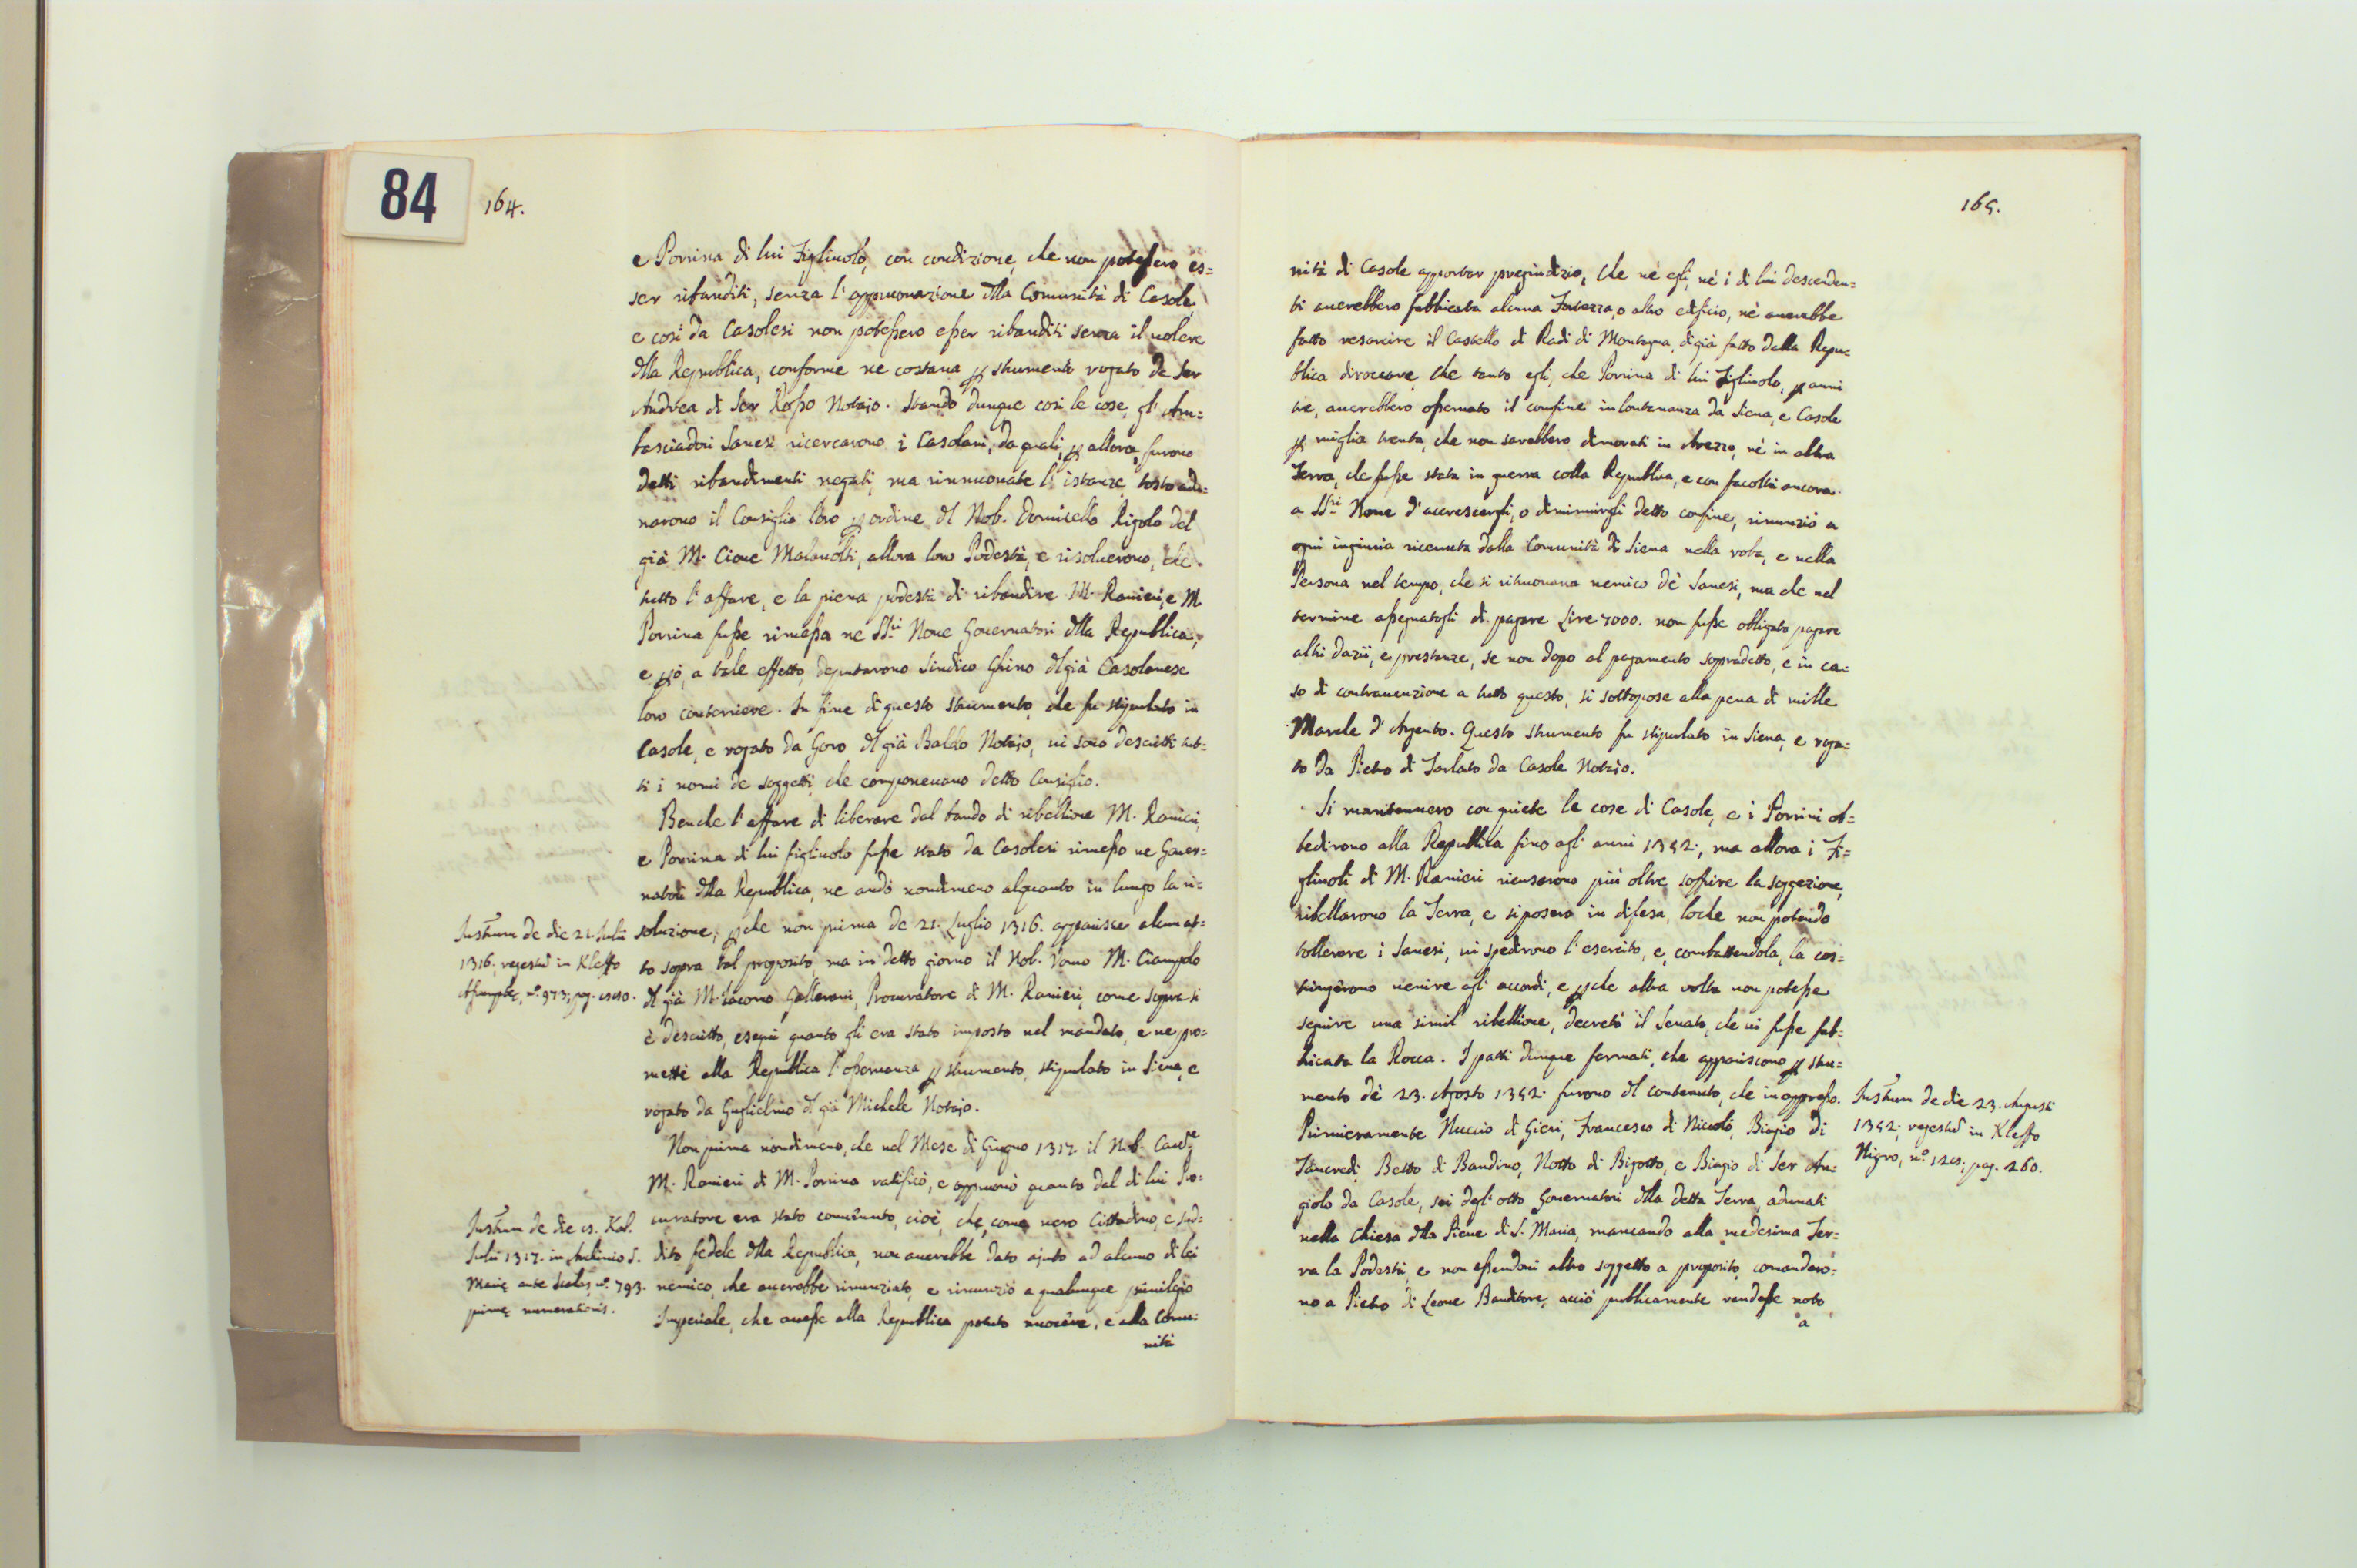 84
164.
e Porrina di lui Figliuolo, con condizione, che non potessero es=
ser ribanditi, senza l'approuazione dlla Comunità di Casole,
e così da Casolesi non potessero esser ribanditi senza il uolere
dlla Republica, conforme ne costaua p strumento rogato da Ser
Andrea di Ser Rosso Notaio. Stando dunque così le cose, gl'Am=
basciadori Sanesi ricercarono i Casolani, da quali, p allora, furono
detti ribandimenti negati, ma rinnuouate l'istanze, tosto adu=
narono il Consiglio loro p ordine dl Nob. Domicello Rigolo del
già M. Cione Malauolti, allora loro Podestà, e risoluerono, che
tutto l'affare, e la piena podestà di ribandire M. Ranieri, e M.
Porrina fusse rimessa ne SSri Noue Gouernatori dlla Republica,
e pciò, a tale effetto, deputarono Sindico Ghino dl già Casolanese
loro conterriere. In fine di questo strumento, che fu stipulato in
Casole, e rogato da Goro dl già Baldo Notaio, ui sono descritti tut=
ti i nomi de soggetti, che componeuano detto Consiglio.
Benche l'affare di liberare dal bando di ribellione M. Ranieri,
e Porrina di lui figliuolo fusse stato da Casolesi rimesso ne Gouer=
natori dlla Republica, ne andò nondimeno alquanto in lungo la ri=
soluzione, pche non prima de 21. Luglio 1316. apparisce alcun at=
to sopra tal proposito, ma in detto giorno il Nob. Uomo M. Ciampolo
dl già M. Iacomo Gallerani, Procuratore di M. Ranieri, come sopra si
è descritto, eseguì quanto gli era stato imposto nel mandato, e ne pro=
messe alla Republica l'osseruanza p strumento, stipulato in Siena, e
rogato da Guglielmo dl già Michele Notaio.
Instrum de die 21. Iulii
1316. regestat in Kleffo
Assumptæ, nº. 973, pag.
Non prima nondimeno, che nel Mese di Giugno 1317. il Nob. Caure
M. Ranieri di M. Porrina ratificò, e approuò quanto dal di lui Pro=
curatore era stato conuenuto, cioè, che, come uero Cittadino, e sud=
dito fedele dlla Republica, non auerebbe dato ajuto ad alcuno di lei
nemico, che auerebbe rinunziato, e rinunziò a qualunque priuilegio
Imperiale, che auesse alla Republica potuto nuocere, e alla Comu=
nità
Instrum de die Kal.
Iulii 1317. in Archiuio S.
Mariæ ante Scalas, nº. 793.
primæ numerationis.
165.
nità di Casole apportar pregiudizio, che nè egli, nè i di lui descenden=
ti auerebbero fabbricata alcuna Fortezza, o altro edificio, nè auerebbe
fatto resarcire il Castello di Radi di Montagna, di già fatto dalla Repu=
blica diroccare, che tanto egli, che Porrina di lui Figliuolo, p anni
tre, auerebbero osseruato il confine in lontananza da Siena, e Casole
p miglia trenta, che non sarebbero dimorati in Arezzo, nè in altra
Terra, che fusse stata in guerra colla Republica, e con facoltà ancora
a SSri Noue d'accrescergli, o diminuirgli detto confine, rinunziò a
ogni ingiuria riceuuta dalla Comunità di Siena nella roba, e nella
Persona nel tempo, che si ritrouaua nemico de' Sanesi, ma che nel
termine assegnatogli di pagare Lire 7000. non fusse obligato pagare
altri dazii, e prestanze, se non dopo al pagamento sopradetto, e in ca=
so di contrauenzione a tutto questo, si sottopose alla pena di mille
Marche d'Argento. Questo strumento fu stipulato in Siena, e roga=
to da Pietro di Tarlato da Casole Notaio.
Si mantennero con quiete le cose di Casole, e i Porrini ob=
bedirono alla Republica fino agl'anni 1352., ma allora i Fi=
gliuoli di M. Ranieri ricusarono più oltre soffrire la soggezione,
ribellarono la Terra, e si posero in difesa, loche non potendo
tollerare i Sanesi, ui spedirono l'esercito, e, combattendola, la cos=
trinsero uenire agl'accordi, e pche altra uolta non potesse
seguire una simil ribellione, decretò il Senato, che ui fusse fab=
bricata la Rocca. I patti dunque fermati, che appariscono p stru=
mento de' 23. Agosto 1352. furono dl contenuto, che in appresso.
Primieramente Nuccio di Gieri, Francesco di Niccolò, Biagio di
Tancredi, Betto di Bandino, Notto di Bigotto, e Biagio di Ser An=
giolo da Casole, sei degl'otto Gouernatori dlla detta Terra, adunati
nella Chiesa dlla Pieue di S. Maria, mancando alla medesima Ter=
ra la Podestà, e non essendoui altro soggetto a proposito, comandaro=
no a Pietro di Leone Banditore, acciò publicamente rendesse noto
a
Instrum de die 23. Augusti
1352. regestat in Kleffo
Nigro, nº. pag. 260.